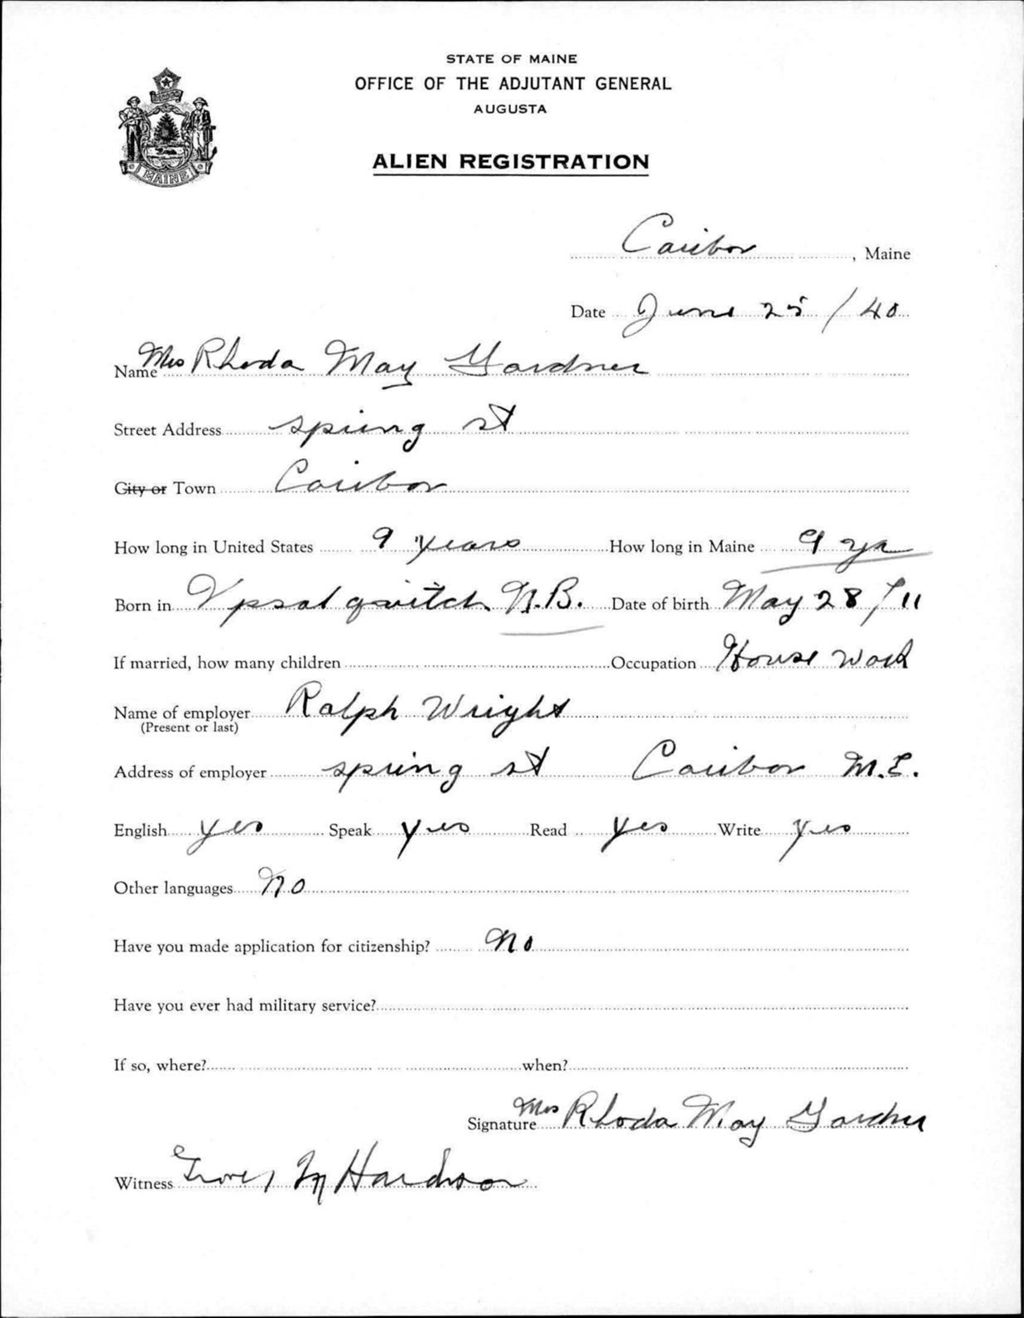 STATE OF MAINE
OFFICE OF THE ADJUTANT GENERAL
AUGUSTA
ALIEN REGISTRATION
MAINE
Caribou, Maine
Date June 25 / 40
Name Mrs Rhoda May Gardner
Street Address spring st
City or Town Caribou
How long in United States 9 years How long in Maine 9 yr
Born in Upsalquitch N.B. Date of birth May 28 / 11
If married, how many children Occupation House work
Name of employer Ralph Wright
(Present or last)
Address of employer spring st Caribou M.E.
English yes Speak yes Read yes Write yes
Other languages No
Have you made application for citizenship? No
Have you ever had military service?
If so, where? when?
Signature Mrs Rhoda May Gardner
Witness M Hardison